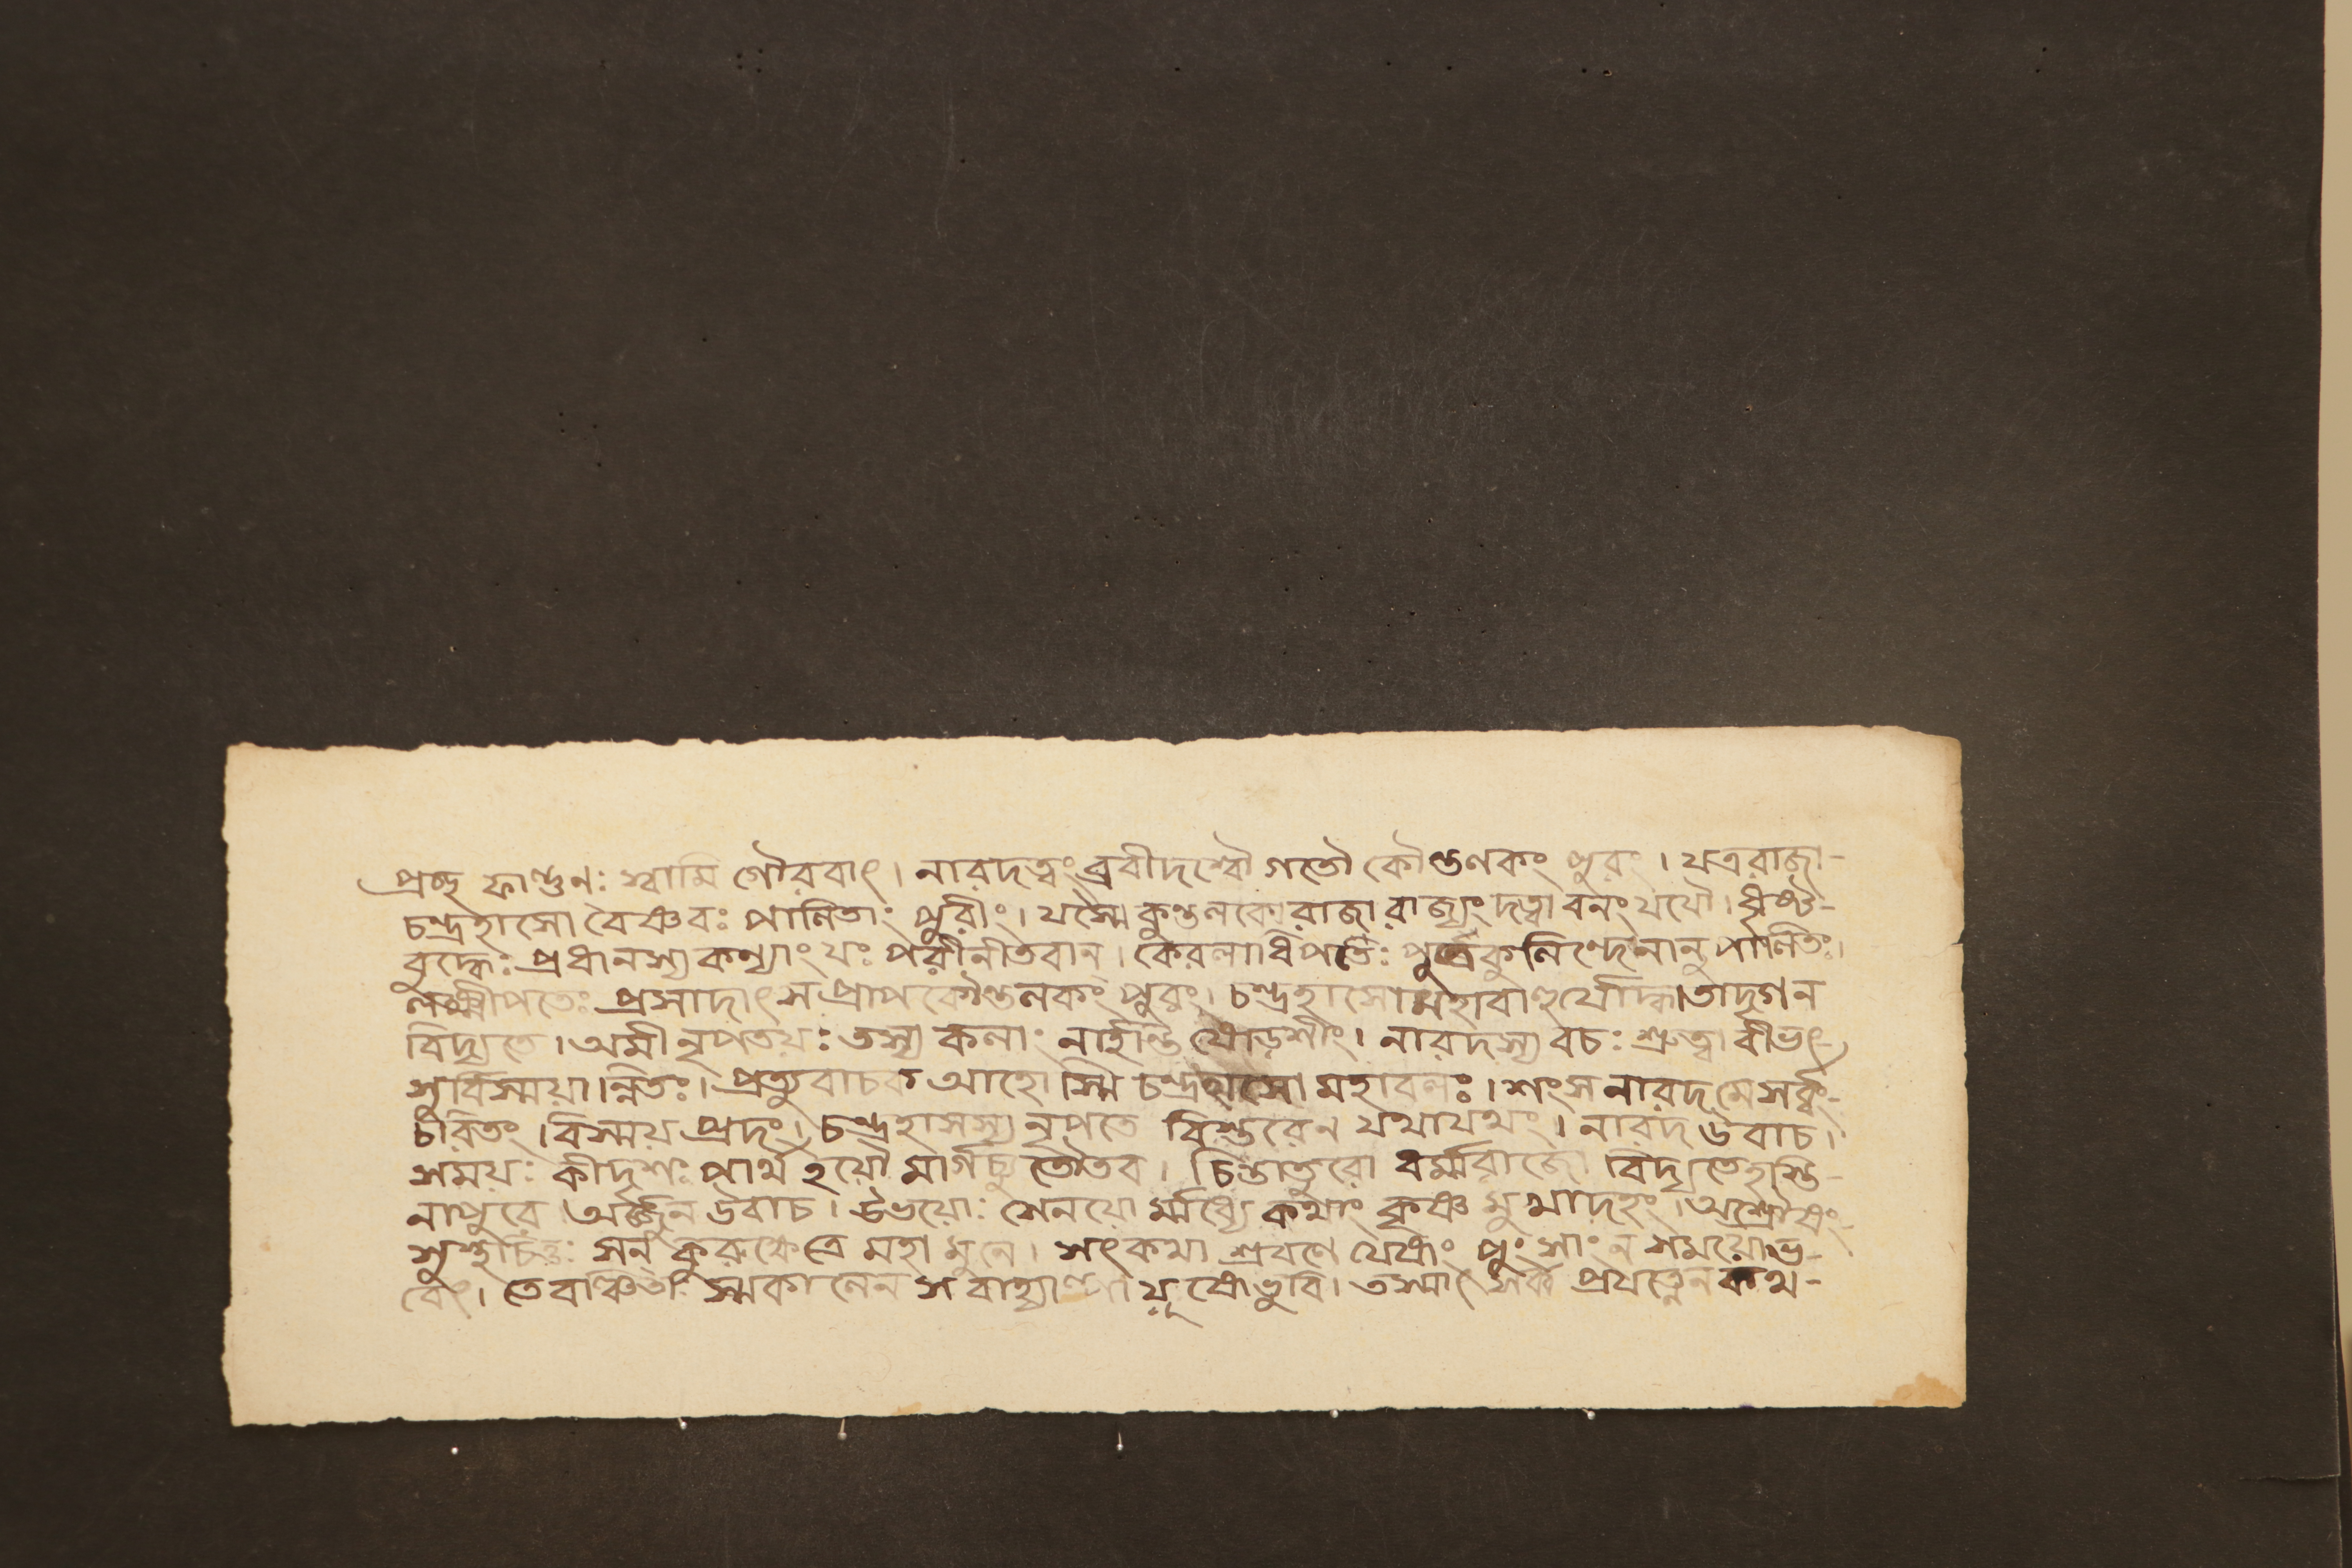 প্রচ্ছ ফাল্গুনঃ স্বামি গৌরবাৎ। নারদত্বংব্রবীদশ্বৌ গতৌ কৌণ্ডলকং পুরং। যত্ররাজা-
চন্দ্রহাসো বৈষ্ণবঃ পালিতাং পুরীং। যস্মৈ কুণ্ডলকোরাজা রাজ্যংদত্বা বনং যযৌ। ধৃষ্ট-
বুদ্ধেঃ প্রধানস্য কন্যাং যঃ পরীনীতবান। কেরলাধিপতেঃ পুত্রঃকুলিন্দেনানু পালিতঃ।
লক্ষ্মীপতেঃ প্রসাদাৎ স প্রাপ কৌণ্ডলকং পুরং। চন্দ্রহাসোমহাবাহুর্যোদ্ধাতাদৃগন
বিদ্যতে। অমী নৃপতয়ঃ তস্য কলাং নার্হন্তি ষোড়শীং। নারদস্য বচঃ শ্রুত্বা বীভৎ
সুর্বিস্ময়ান্নিতঃ। প্রত্যুবাচক আহো স্মি চন্দ্রহাসো মহাবলঃ। শংস নারদ মেসর্ব্বং-
চরিতং। বিস্ময় প্রদং। চন্দ্রহাসস্য নৃপতে বিস্তরেন যথাযথং। নারদ উবাচ।
সময়ঃ কীদৃশঃ পার্থ হয়ৌ মার্গচ্যুতৌতব। চিন্তাতুরো ধর্ম্মরাজো বিদ্যতেহস্তি-
নাপুরে। অর্জ্জুন উবাচ। উভয়োঃ সেনয়ো র্ম্মধ্যে কথাং কৃষ্ণ মুখাদহং। অশ্রৌষং-
সুস্থচিত্তঃ সন্ কুরুক্ষেত্রে মহা মুনে। সৎকথা শ্রবণে যেষাং পুং সাং ন সময়োভ-
বেৎ। তেবাঞ্চিতাঃ স্মকালেন স বাহ্যা যুষোভুবি। তস্মাৎ সর্ব্ব প্রযত্নেন কথ-